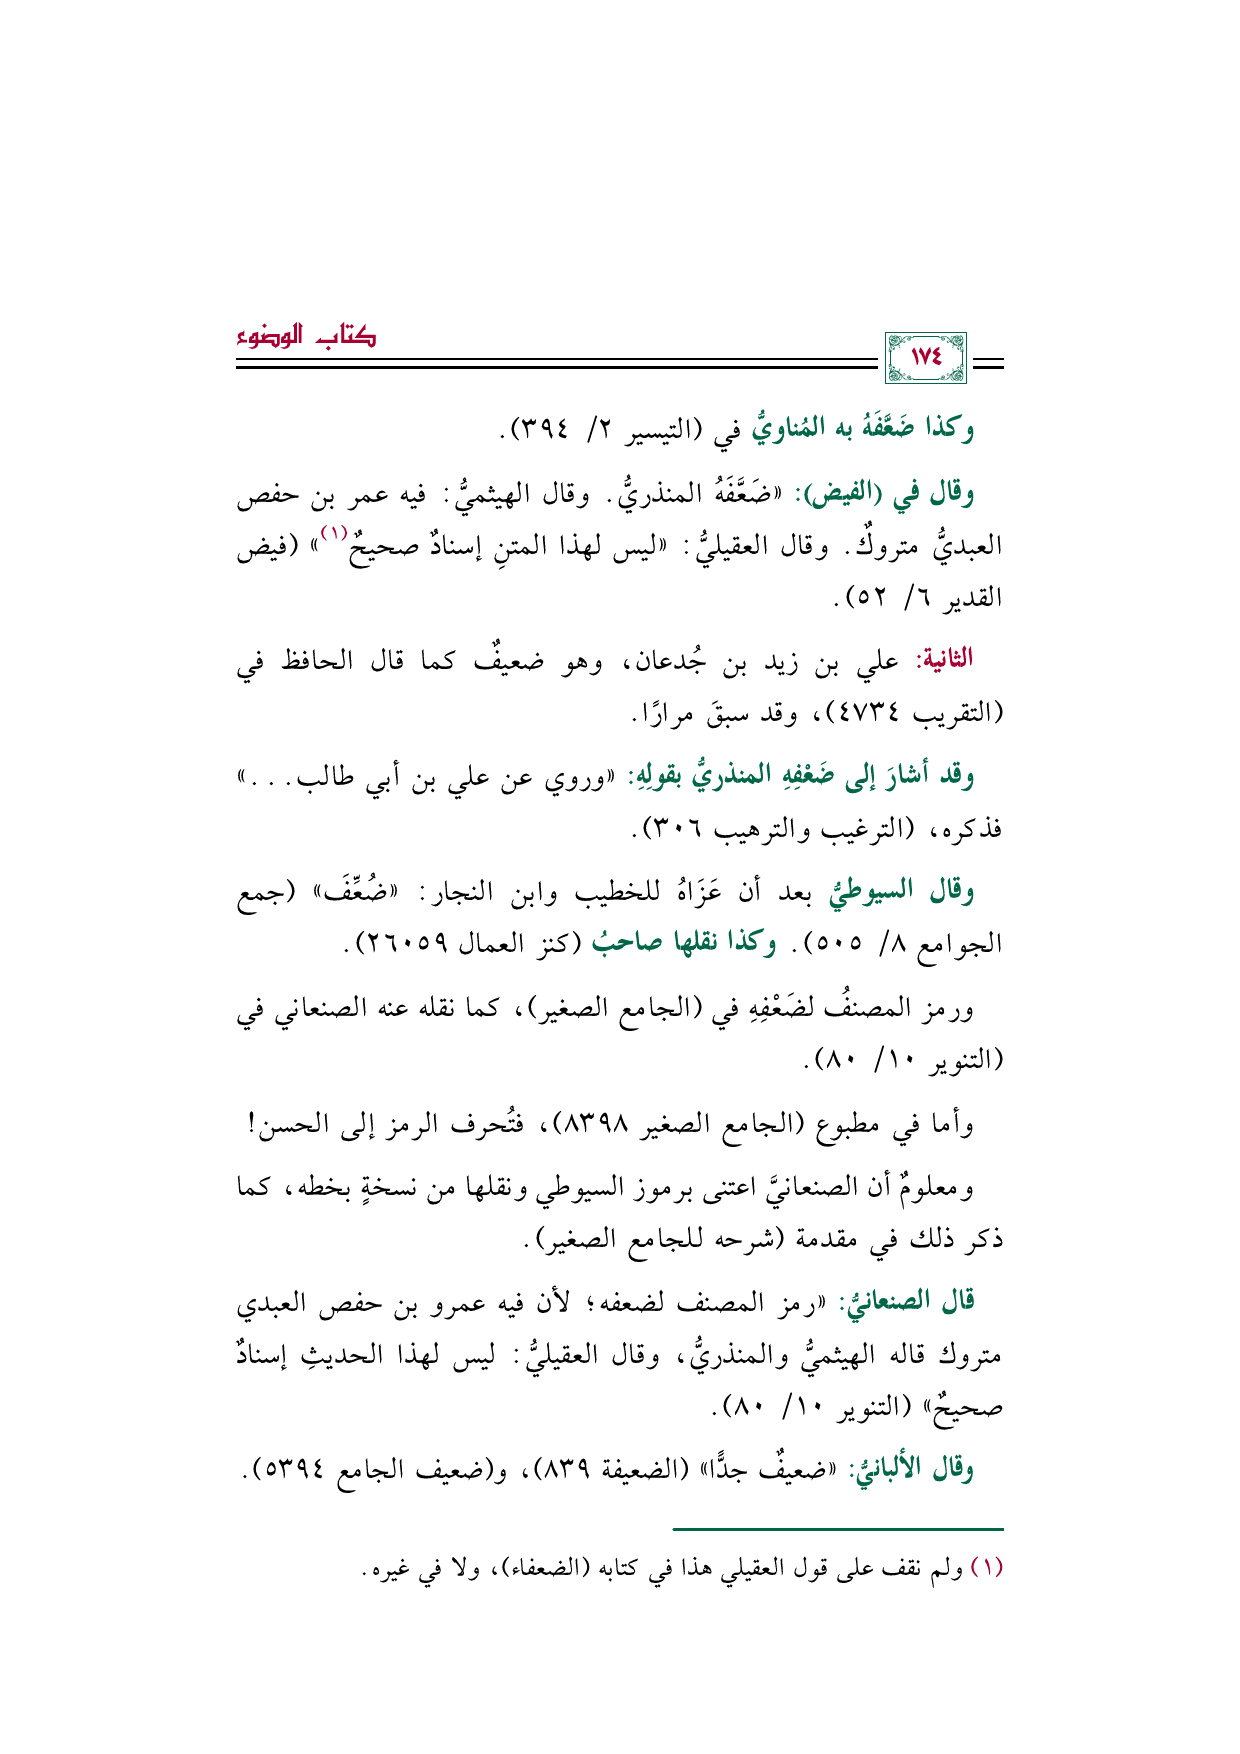 كتاب الوضوء
١٧٤
وكذا ضَعَّفَهُ به المُناويُّ في (التيسير ٢/ ٣٩٤).
وقال في (الفيض): «ضَعَّفَهُ المنذريُّ. وقال الهيثميُّ: فيه عمر بن حفص
العبديُّ متروكٌ. وقال العقيليُّ: «ليس لهذا المتنِ إسنادٌ صحيحٌ(١)» (فيض
القدير ٦/ ٥٢).
الثانية: علي بن زيد بن جُدعان، وهو ضعيفٌ كما قال الحافظ في
(التقريب ٤٧٣٤)، وقد سبقَ مرارًا.
وقد أشارَ إلى ضَعْفِهِ المنذريُّ بقولِهِ: «وروي عن علي بن أبي طالب...»
فذكره، (الترغيب والترهيب ٣٠٦).
وقال السيوطيُّ بعد أن عَزَاهُ للخطيب وابن النجار: «ضُعِّفَ» (جمع
الجوامع ٨/ ٥٠٥). وكذا نقلها صاحبُ (كنز العمال ٢٦٠٥٩).
ورمز المصنفُ لضَعْفِهِ في (الجامع الصغير)، كما نقله عنه الصنعاني في
(التنوير ١٠/ ٨٠).
وأما في مطبوع (الجامع الصغير ٨٣٩٨)، فتُحرف الرمز إلى الحسن!
ومعلومٌ أن الصنعانيَّ اعتنى برموز السيوطي ونقلها من نسخةٍ بخطه، كما
ذكر ذلك في مقدمة (شرحه للجامع الصغير).
قال الصنعانيُّ: «رمز المصنف لضعفه؛ لأن فيه عمرو بن حفص العبدي
متروك قاله الهيثميُّ والمنذريُّ، وقال العقيليُّ: ليس لهذا الحديثِ إسنادٌ
صحيحٌ» (التنوير ١٠/ ٨٠).
وقال الألبانيُّ: «ضعيفٌ جدًّا» (الضعيفة ٨٣٩)، و(ضعيف الجامع ٥٣٩٤).
(١) ولم نقف على قول العقيلي هذا في كتابه (الضعفاء)، ولا في غيره.